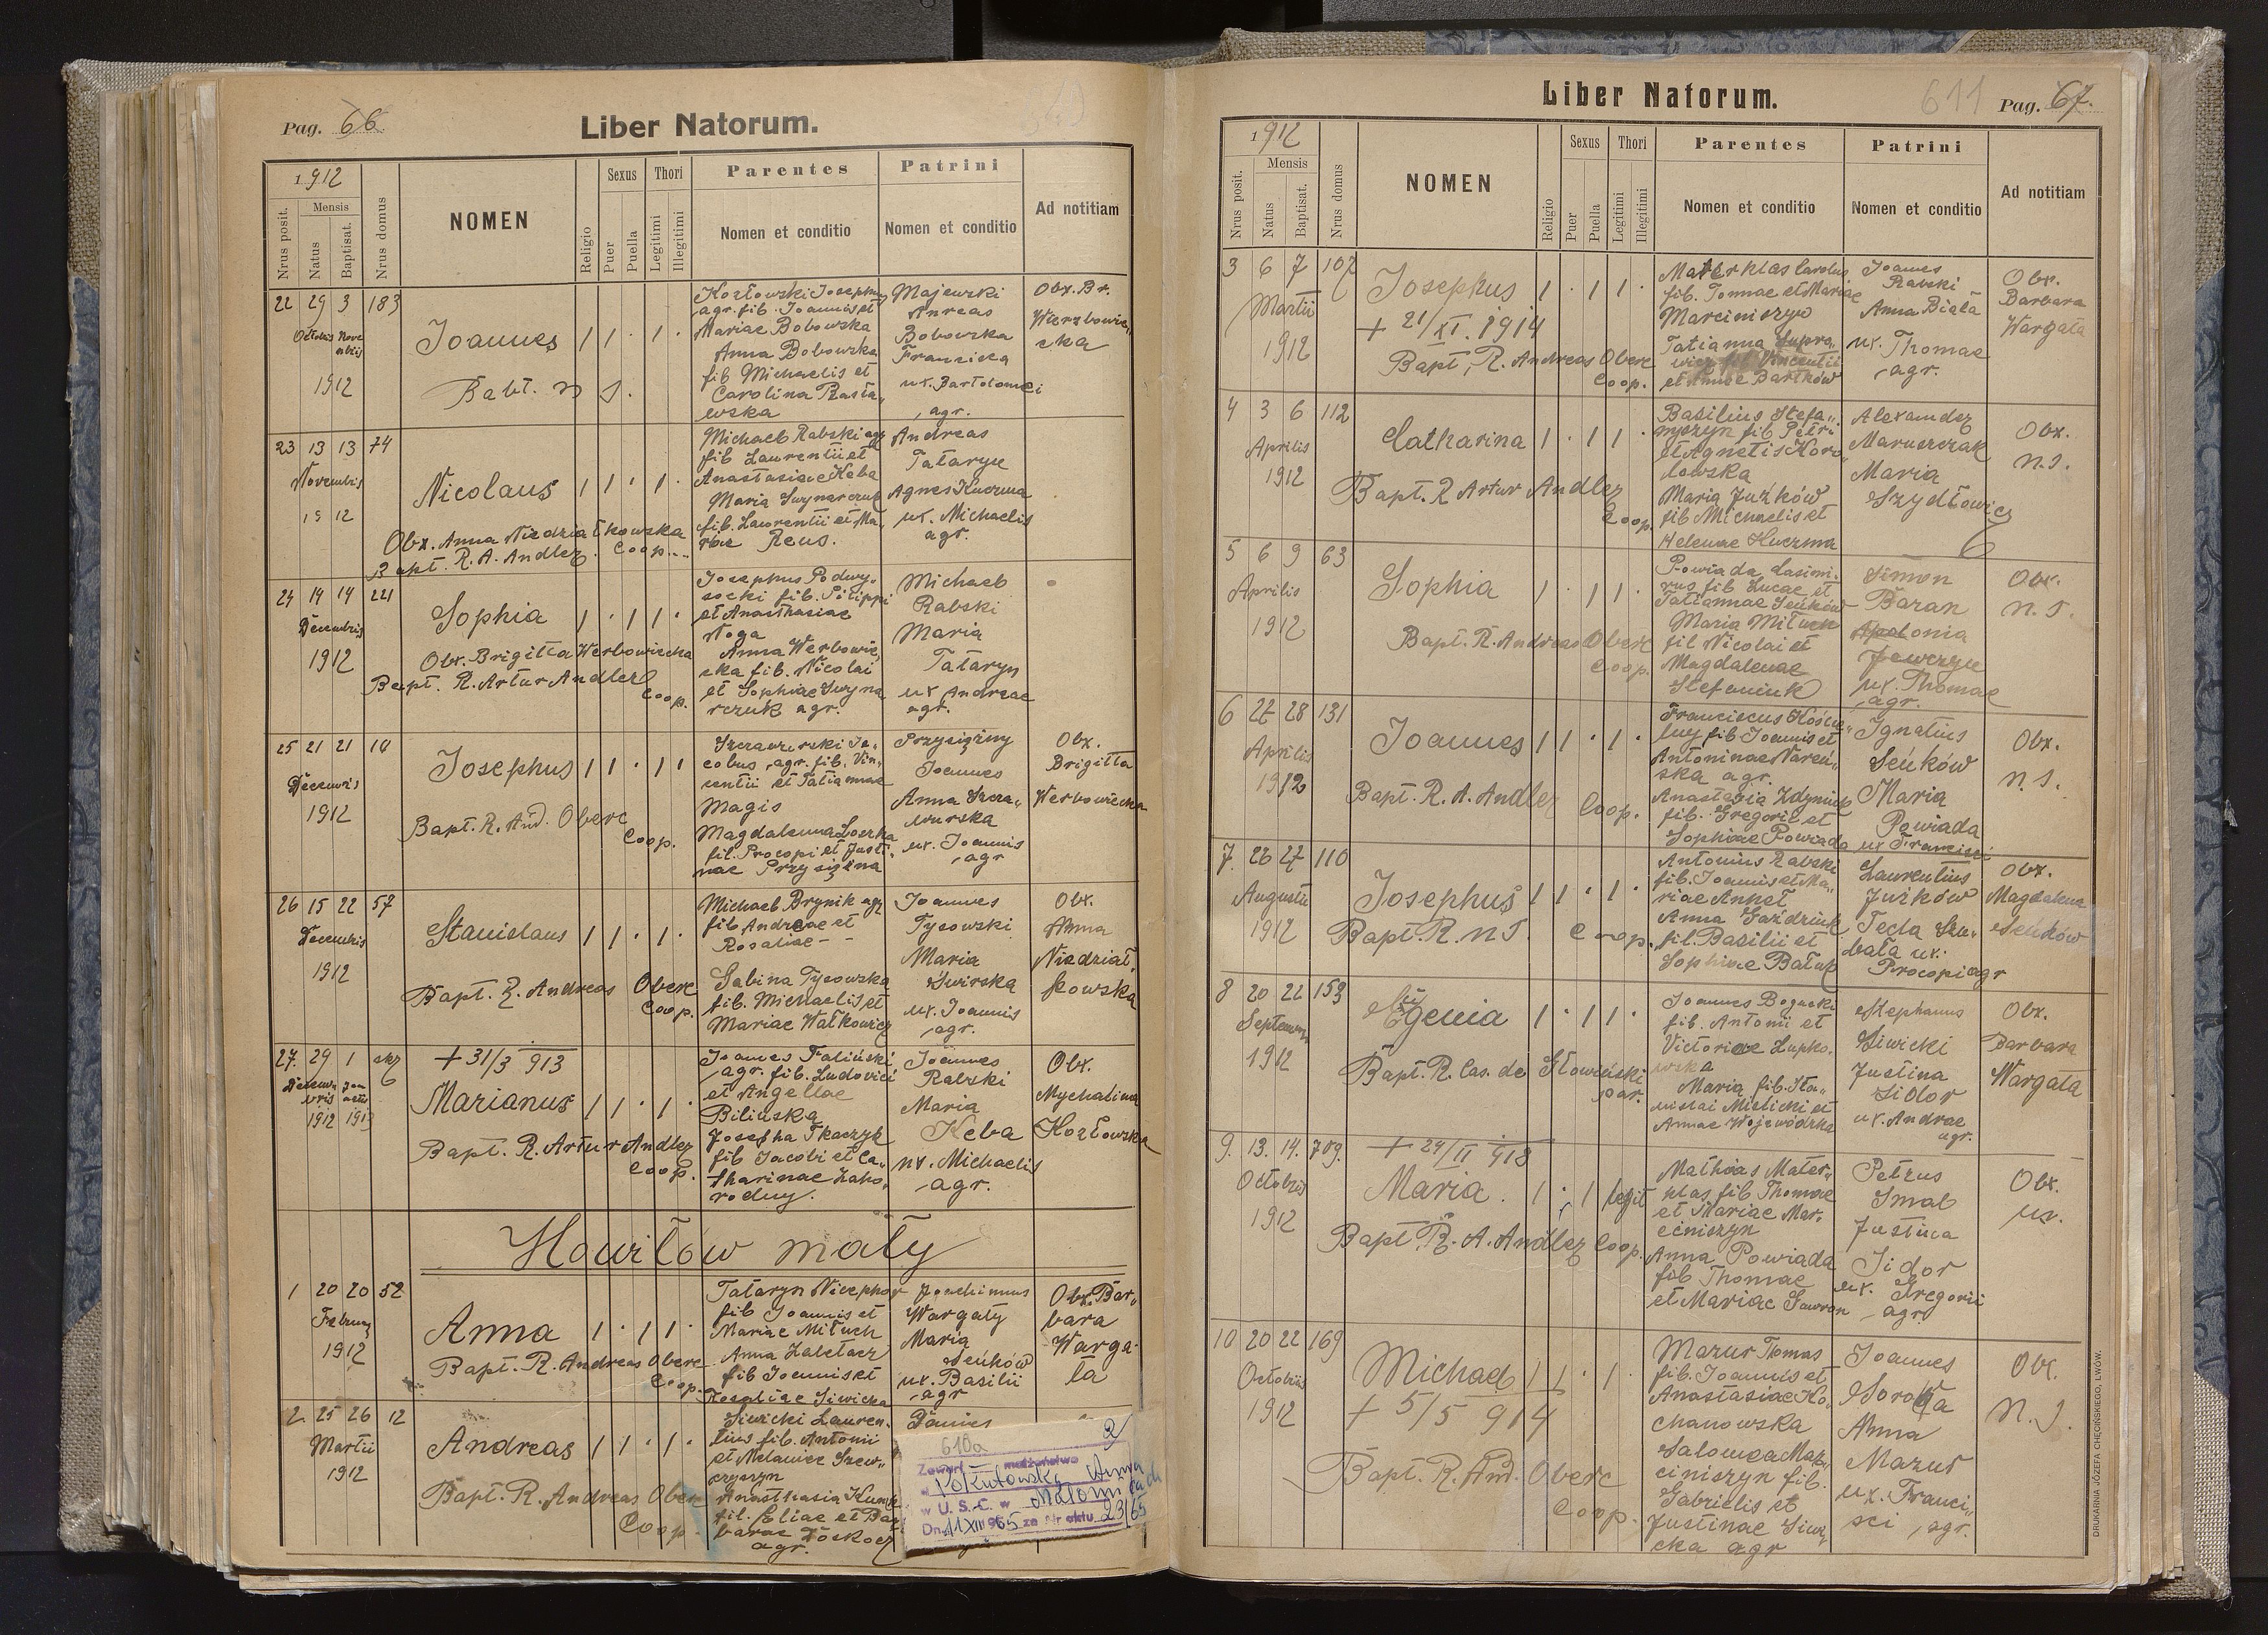 Pag. 66.
Liber Natorum.
1912
Nrus posit.
Mensis
Natus
Baptisat.
Nrus domus
NOMEN
Religio
Sexus
Puer
Puella
Thori
Legitimi
Illegitimi
Parentes
Nomen et conditio
Patrini
Nomen et conditio
Ad notitiam
22 29 3 183
Octobris Novembris
1912
Joannes 1 1 · 1 ·
Babt. n S.
Kozłowski Josephus
agr. fil. Joannis et
Mariae Bobowska
Anna Bobowska
fil Michaelis et
Carolina Rasta„
ewska
Majewski
Anreas
Bobowska
Francisca
ux. Bartolomei
, agr.
Obx. Br.
Wierzbowie„
cka
23 13 13 74
Novembris
1912
Nicolaus 1 1 · 1 ·
Obx. Anna Niedziałkowska
Bapt. R. A. Andlez. Coop.
Michael Rabski agr
fil Laurentii et
Anastasiae Keba
Maria Swynarczuk
fil. Laurentii et Ma„
riae Reus.
Andreas
Tataryn
Agnes Kuczma
ux. Michaelis
agr.
24 14 14 221
Decembris
1912
Sophia 1 · 1 1 ·
Obx. Brigitta Werbowiecka
Bapt. R. Artur Andlez
Coop.
Josephus Podwy„
socki fil. Pilippi
et Anasthasiae
Noga
Anna Werbowie„
cka fil. Nicolai
et Sophiae Swyna
rczuk agr.
Michael
Rabski
Maria
Tataryn
ux Andreae
agr.
25 21 21 14
Decembris
1912
Josephus 1 1 · 1 1
Bapt. R. And. Oberc
Coop.
Szczawurski Ja„
cobus, agr. fil. Vin„
centii et Tatiannae
Magis
Magdalenna Loczka
fil. Procopi et Justi„
nae Przysiężna
Przysiężny
Joannes
Anna Szcza„
wurska
ux. Joannis
, agr
Obx.
Brigitta
Werbowiecka
26 15 22 57
Decembris
1912
Stanislaus 1 1 · 1 ·
Bapt. R. Andreas Oberc
Coop.
Michael Brynik agr
fil Andreae et
Rosaliae - -
Sabina Tysowska
fil. Michaelis et
Mariae Wałkowicz
Joannes
Tysowski
Maria
Swirska
ux. Joannis
, agr.
Obx.
Anna
Niedział„
kowska
27. 29 1
1912 1913
+ 31/3 913
Marianus 1 1 · 1 ·
Bapt. R. Artur Andlez
Coop.
Joannes Faliński
, agr. fil. Ludovici
et Angellae
Bilińska
Josepha Tkaczyk
fil Jacobi et Ca„
tharinae Zaho„
rodny.
Joannes
Rabski
Maria
Keba
ux. Michaelis
, agr.
Obx.
Mychalina
Kozłowska
Howiłow mały
1 20 20 52
1912
Anna 1 · 1 1 ·
Bapt. R. Andreas Oberc
Coop.
Tataryn Nicephor
fil Joannis et
Mariae Miłuch
Anna Zaletacz
fil Joannis et
Rosaliae Siwicka
Joachimus
Wargaty
Maria
Seńków
ux. Basilii
agr
Obx. Bar„
bara
Warga„
ła
2. 25 26 12
Martii
1912
Andreas 1 1 · 1 ·
Bapt. R. Andreas Oberc
Coop
Siwicki Lauren„
tius fil. Antonii
et Melaniae Szew„
czyszyn
Anasthasia
fil. Eliae et Bar
barae
agr.
610a 2/
Zawarł małżeństwo
Anna
w U. S. C. w
Dn. 11 XII 1965 za Nr aktu 23/65
Liber Natorum.
611
Pag. 67.
1912
Nrus posit.
Mensis
Natus
Baptisat.
Nrus domus
NOMEN
Religio
Sexus
Puer
Puella
Thori
Legitimi
Illegitimi
Parentes
Nomen et conditio
Patrini
Nomen et conditio
Ad notitiam
3 6 7 107
Martii
1912
Josephus 1 · 1 1 ·
+ 21/XI. 1914
Bapt, R. Andreas Oberc
Coop.
Materklas Carolus
fil. Tomae et Mariae
Marciniszyn
Tatianna Supro„
wicz fil Vincentii
et Annae Bartków
Joannes
Rabski
Anna Biała
ux. Thomae
, agr.
Obx.
Barbara
Wargata
4 3 6 112
Aprilis
1912
Catharina 1 · 1 1 ·
Bapt. R Artur Andlez
Coop.
Basilius Stefa„
nyszyn fil Petri
et Agnetis Koro
lowska
Maria Juźków
fil Michaelis et
Helenae Kuczma
Alexander
Maruszczak
Maria
Szydłowicz
Obx.
n. S.
5 6 9 63
Aprilis
1912
Sophia 1 · 1 1 ·
Bapt. R. Andreas Oberc
Coop.
Powiada Casimi„
rus fil Lucae et
Tatiannae Seńków
Maria Miłuch
fil Nicolai et
Magdalenae
Stefaniuk
Simon
Baran
Apolonia
ux. Thomae
, agr.
Obx.
n. S.
6 27 28 131
Aprilis
1912
Joannes 1 1 · 1 ·
Bapt. R. A. Andlez Coop.
fil Joannis et
Antoninae
ska agr.
fil. Gregorii et
Sophiae Powiada
Ignatius
Seńków
Maria
Powiada
ux Francisci
Obx.
n. S.
7. 26 27 110
Augusti
1912
Josephus 1 1 · 1 ·
Bapt. R. n S. Coop.
Antonius Rabski
fil. Joannis et Ma„
riae
Anna Gaździuk
fil. Basilii et
Sophiae
Laurentius
Juźków
Tecla Szu„
bała ux.
Procopi agr
Obx.
Magdalena
Seńków
8 20 22 153
1912
Eugenia 1 · 1 1 ·
Bapt. R. Cas. de Słowiński
par.
Joannes Bogucki
fil. Antonii et
Victoriae Łupko„
wska
Maria fil. Sta„
nislai Mielicki et
Annae Wojewódzka
Stephanus
Siwicki
Justina
Sidor
ux. Andrae
agr.
Obx.
Barbara
Wargata
9. 13. 14. 709.
Octobris
1912
+ 24/II 918
Maria. 1 · 1 legit
Bapt. R. A. Andlez Coop.
Mathias Mater„
klas fil Thomae
et Mariae Mar„
ciniszyn
Anna Powiada
fil Thomae
et Mariae Gawron
Petrus
Smal
Justina
Sidor
ux. Gregorii
agr.
Obx.
10 20 22 169
Octobris
1912
Michael 1 1 · 1
+ 5/5 914
Bapt. R. And. Oberc
Coop.
Mazur Thomas
fil. Joannis et
Anastasiae Ko„
chanowska
Salomea Mar„
ciniszyn fil.
Gabrielis et
Justinae Siwi„
cka agr
Joannes
Anna
Mazur
ux. Franci„
sci, agr.
Obx.
n. S.
DRUKARNIA JÓZEFA CHĘCIŃSKIEGO, LWÓW.